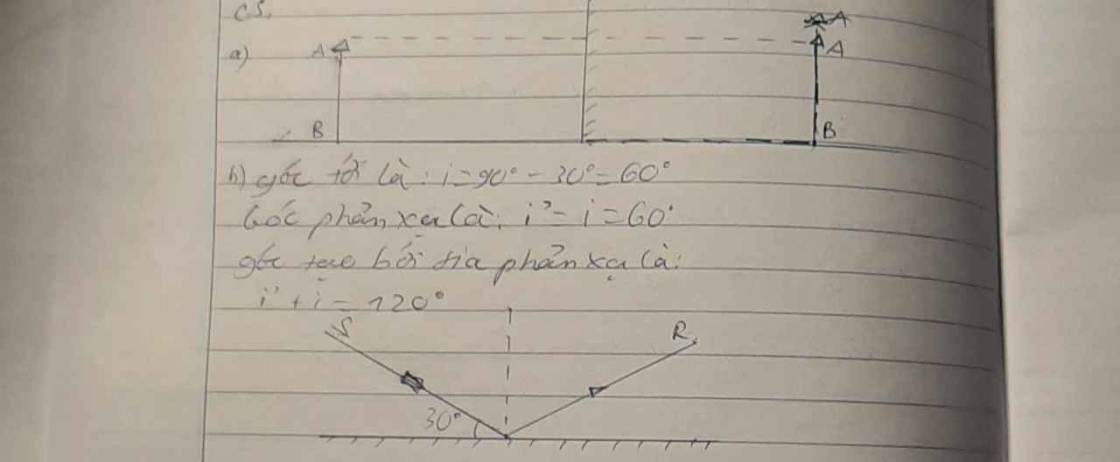 C5.
a)
A
B
A
A
B
b) góc tới là: i = 90° - 30° = 60°
Góc phản xạ là: i' = i = 60°
góc tạo bởi tia phản xạ là:
i' + i = 120°
S
R
30°